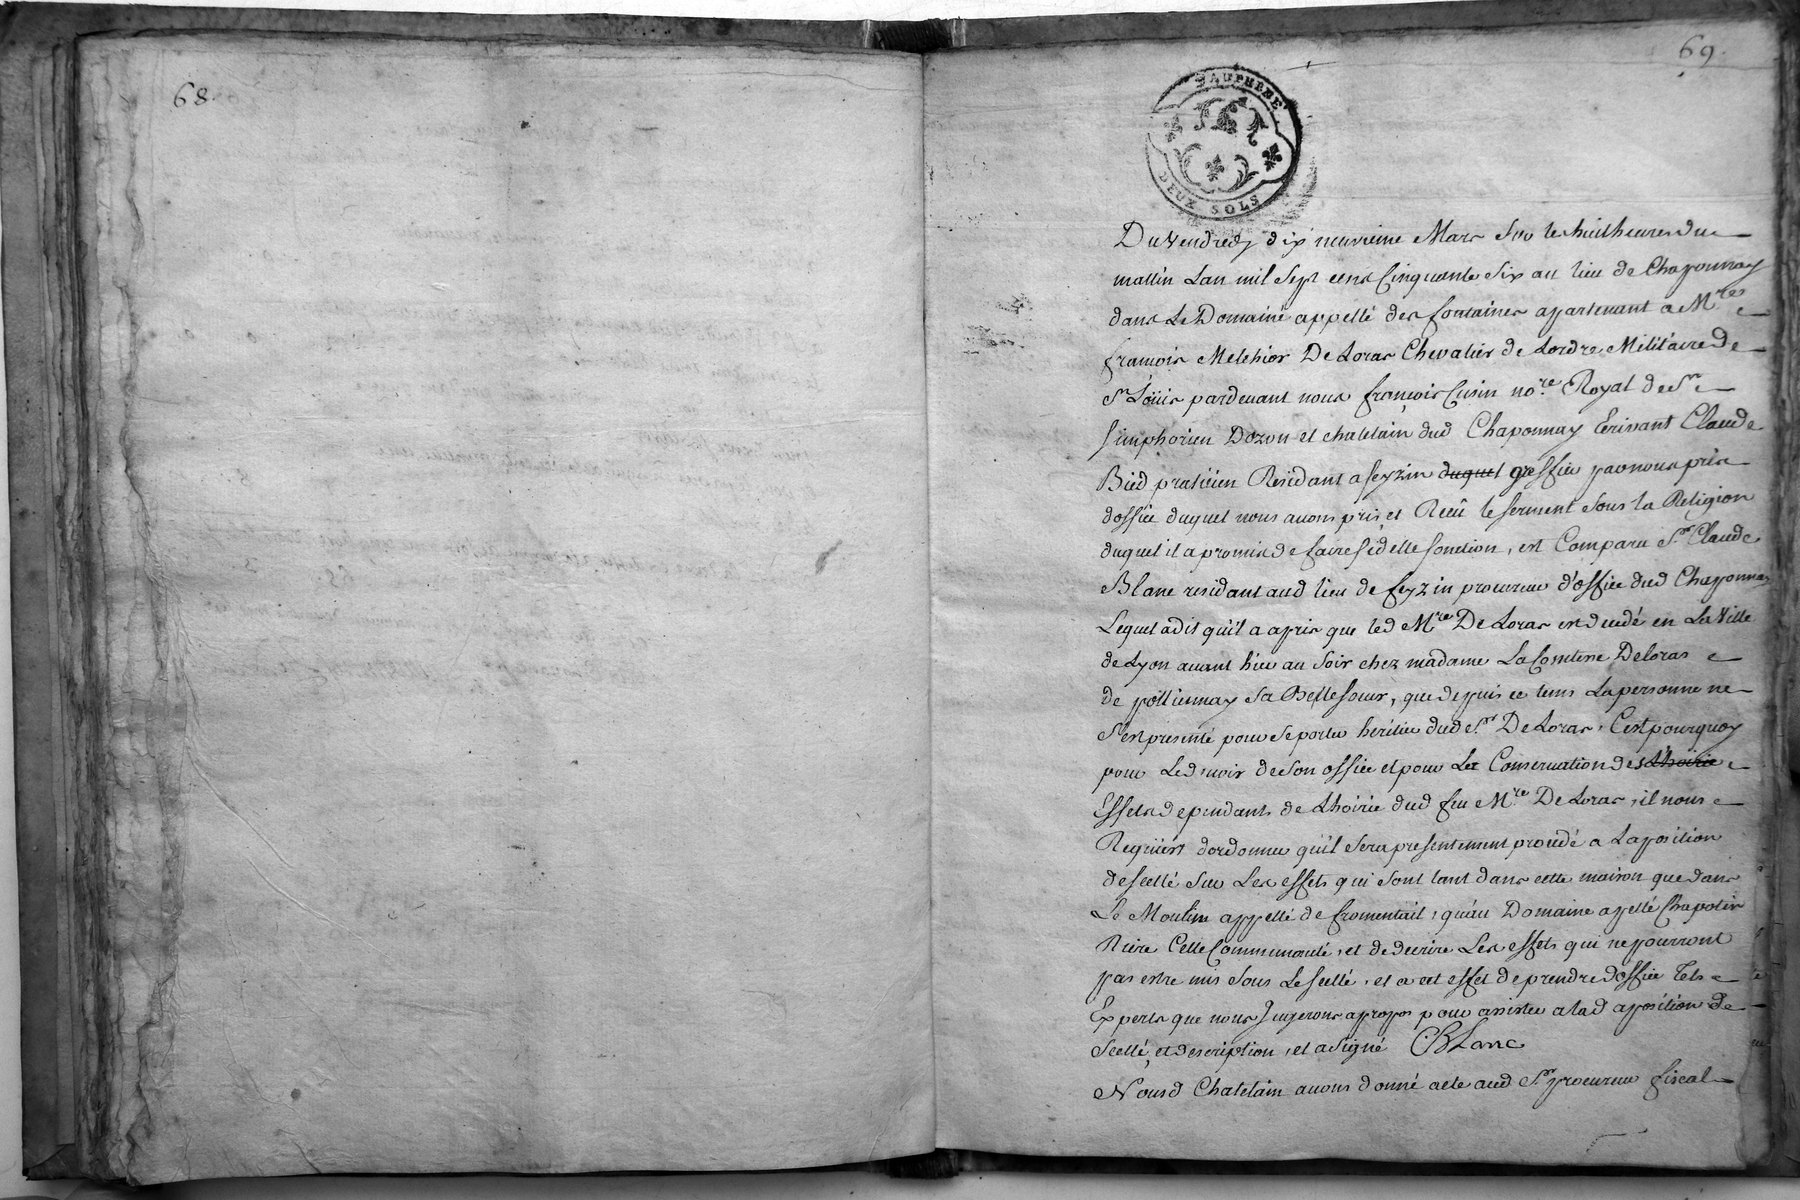 68.
69.
DAUPHINE
DEUX SOLS
Du Vendredy dix neuvieme Mars sur les huit heures du
mattin Lan mil sept cens Cinquante six au lieu de Chaponnay
dans Le Domaine appellé des fontaines apartenant a Mre
françois Melchior De Loras Chevalier de Lordre Militaire de
St Loüis pardevant nous françois Cusin nore Royal de St
simphorien Dozon et chatelain dud Chaponnay Ecrivant Claude
Bied praticien Residant a feyzin duquel greffier par nous pris
doffice duquel nous avons pris et Reçû le serment sous la Religion
duquel il a promis de faire fidelle fonction, est Comparu Sr Claude
Blanc residant aud lieu de feyzin procureur d'office dud Chaponnay
Lequel a dit qu'il a apris que led Mre De Loras est decedé en La Ville
de Lyon avant hier au soir chez madame La Comtesse De loras
de pollienay sa Belle soeur, que depuis ce tems La personne ne
s'est presenté pour se porter heritier dud Sr De Loras, C'est pourquoy
pour Le devoir de son office et pour La Conservation des Lhoirie
Effets dependants de Lhoirie dud feu Mre De Loras, il nous
Requiert dordonner qu'il sera presentement procedé a Laposition
de scellé sur Les effets qui sont tant dans cette maison que dans
Le Moulin appellé de fromentail, qu'au Domaine apellé Chapotin
Riere Cette Communauté, et de decrire Les effets qui ne pourront
pas estre mis sous Le scellé, et a cet effet de prendre doffice Tels
Experts que nous Jugerons apropos pour assister a lad aposition de
scellé et description, et a signé CBlanc
Nousd Chatelain avons donné acte aud Sr procureur fiscal